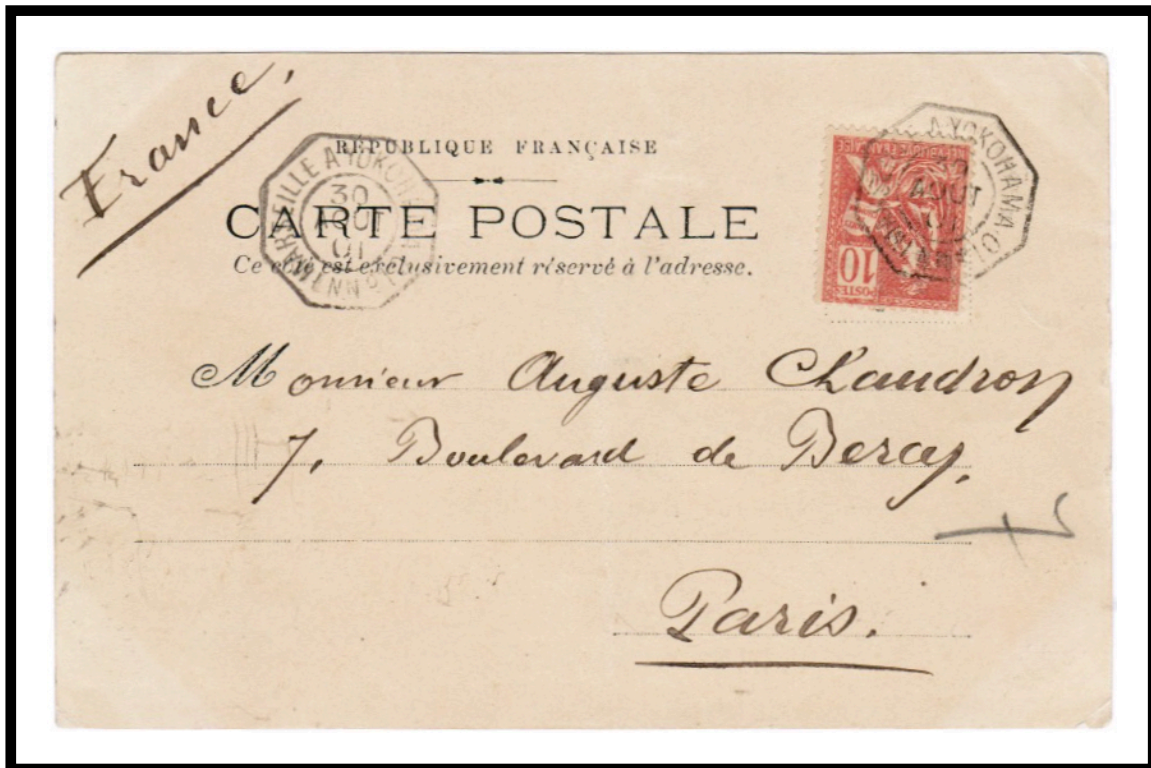 France,
RÉPUBLIQUE FRANÇAISE
CARTE POSTALE
Ce côté est exclusivement réservé à l'adresse.
MARSEILLE A YOKOHAMA
30
AOUT
01
A YOKOHAMA
AOUT
01
10
POSTES
Monsieur Auguste Chaudron
7, Boulevard de Bercy,
Paris.